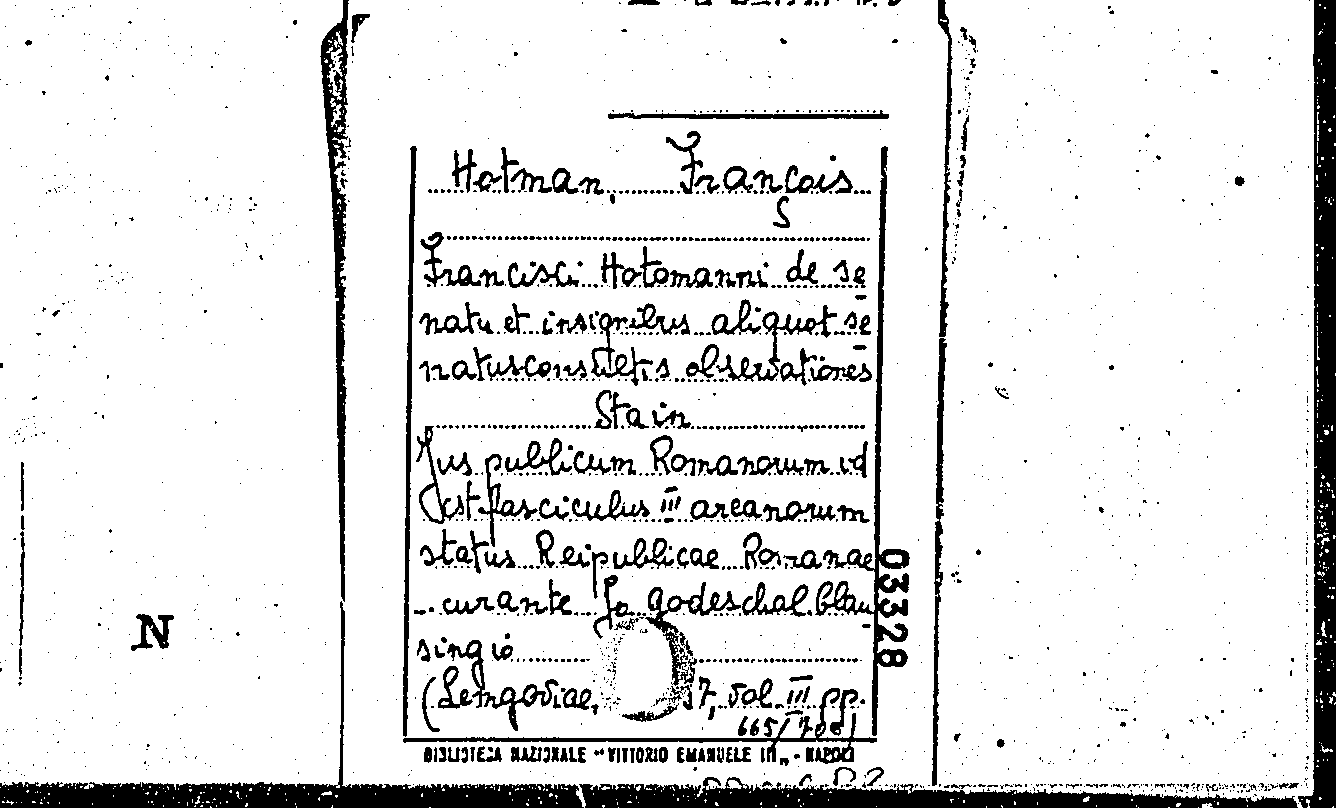 Hotman, François
Francisci Hotomanni de se
natu et insignibus aliquot se
natusconsultis observationes
Sta in
Jus publicum Romanorum id
est fasciculus III arcanorum
status Reipublicae Romanae
... curante Jo godeschal Clau
singio
(Lemgoviae, 37, vol. III pp.
665/708)
BIBLIOTECA NAZIONALE "VITTORIO EMANUELE III„ - NAPOLI
03328
N